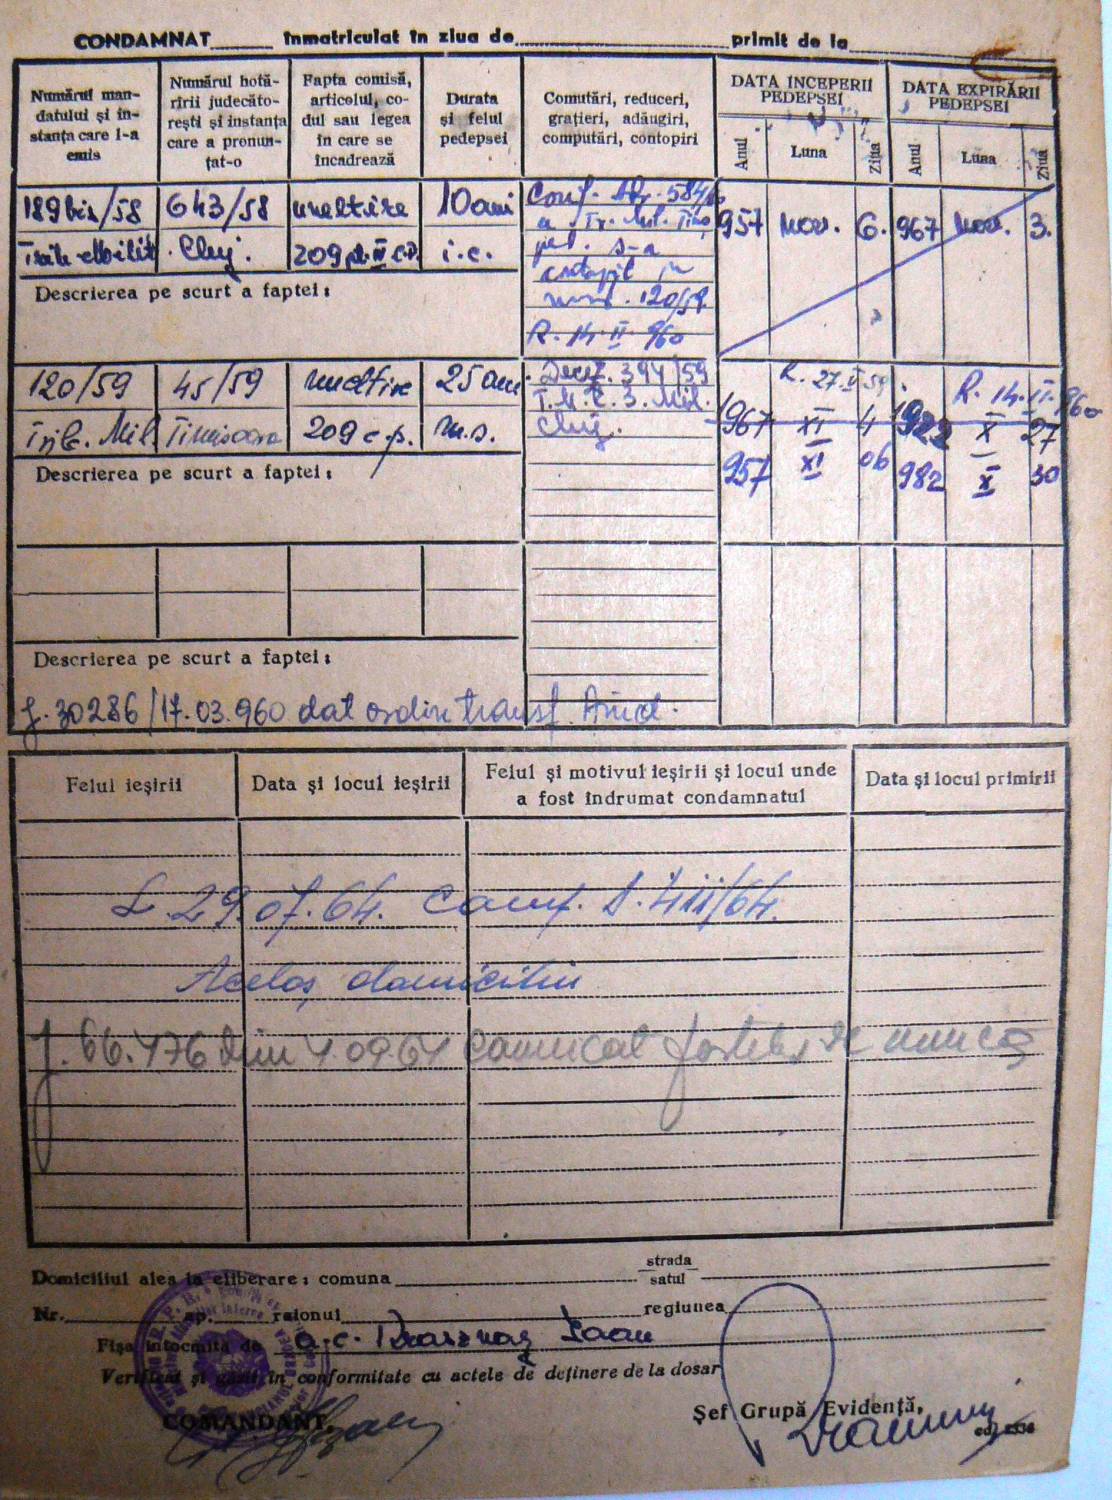 CONDAMNAT înmatriculat în ziua de primit de la
Numărul mandatului și instanța care l-a emis
Numărul hotărîrii judecătorești și instanța care a pronunțat-o
Fapta comisă, articolul, codul sau legea în care se încadrează
Durata și felul pedepsei
Comutări, reduceri, grațieri, adăugiri, computări, contopiri
DATA INCEPERII PEDEPSEI
DATA EXPIRĂRII PEDEPSEI
Anul Luna Ziua Anul Luna Ziua
189 bis/58 643/58 uneltire 10 ani
Cluj. 209 pt. III c.p. i.c.
Conf. 584/60
a Tr. Mil. Timiș
s-a
contopit în
120/59
R. 14. II 960
957 Nov. 6. 967 Nov. 3.
Descrierea pe scurt a faptei:
120/59 45/59 uneltire 25 ani
Trib. Mil Timișoara 209 c.p. m.s.
Deciz. 394/59
T.M.R. 3. Mil.
Cluj.
R. 27. V 59 R. 14. II. 960
1967 XI 4 1922 X 27
957 XI 06 982 X 30
Descrierea pe scurt a faptei:
Descrierea pe scurt a faptei:
J. 30286/17.03.960 dat ordin transf. Aiud.
Felul ieșirii
Data și locul ieșirii
Felul și motivul ieșirii și locul unde a fost îndrumat condamnatul
Data și locul primirii
L. 29.07.64. Conf. D. 411/64.
Acelaș domiciliu
J. 66.476 din 4.09.64 Comunicat de muncă
Domiciliul ales la eliberare: comuna strada
satul
Nr. ap. raionul regiunea
Fișa întocmită de a.c. Ioan
Verificat și găsit în conformitate cu actele de deținere de la dosar
COMANDANT,
Șef Grupă Evidență,